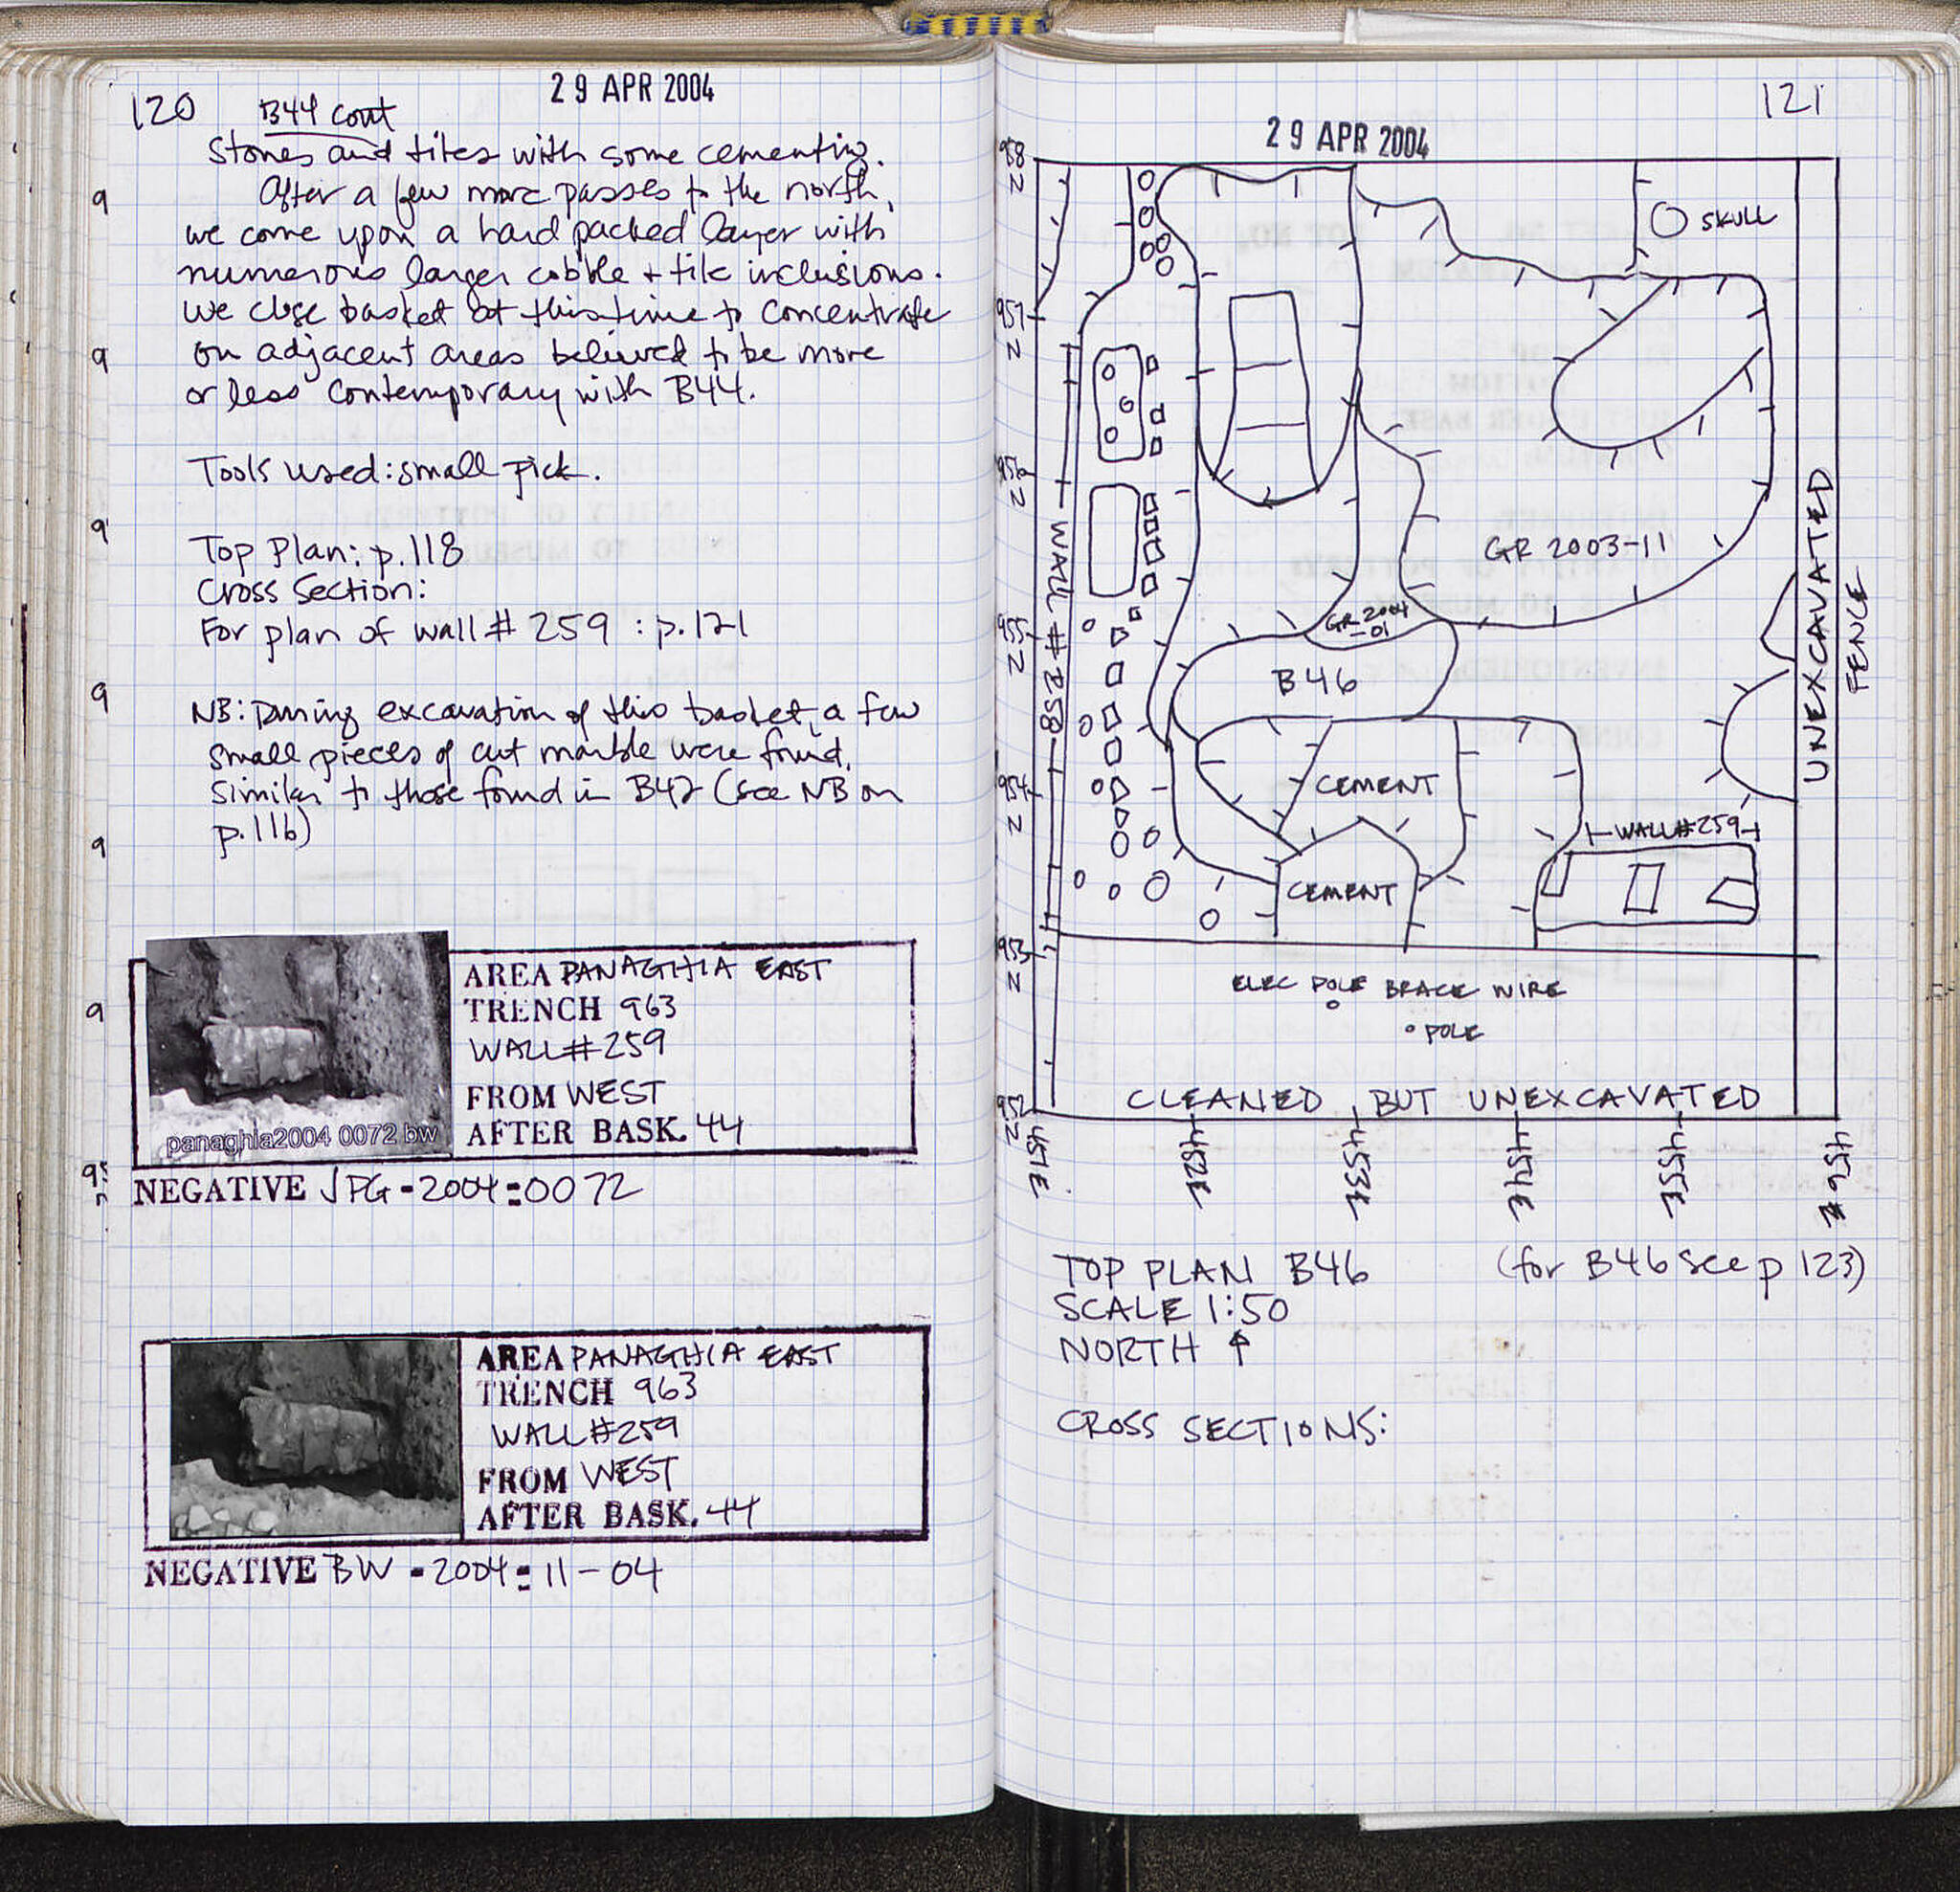 120
B44 cont
29 APR 2004
Stones and tiles with some cementing.
After a few more passes to the north,
we come upon a hard packed layer with
numerous larger cobble + tile inclusions.
We close basket at this time to concentrate
on adjacent areas believed to be more
or less contemporary with B44.
Tools used: small pick.
Top Plan: p.118
Cross Section:
For plan of wall # 259 : p.121
NB: During excavation of this basket, a few
small pieces of cut marble were found,
similar to those found in B42 (see NB on
p.116)
AREA PANAGHIA EAST
TRENCH 963
WALL # 259
FROM WEST
AFTER BASK. 44
panaghia2004 0072 bw
NEGATIVE JPG-2004-0072
AREA PANAGHIA EAST
TRENCH 963
WALL #259
FROM WEST
AFTER BASK. 44
NEGATIVE BW-2004-11-04
121
29 APR 2004
958 N
SKULL
957 N
956 N
GR 2003-11
WALL # 258
UNEXCAVATED
FENCE
955 N
GR 2004
-01
B46
954 N
CEMENT
WALL #259
CEMENT
953 N
ELEC POLE BRACE WIRE
POLE
CLEANED BUT UNEXCAVATED
952 N
451E
452E
453E
454E
455E
456E
TOP PLAN B46 (for B46 see p 123)
SCALE 1:50
NORTH ↑
CROSS SECTIONS: